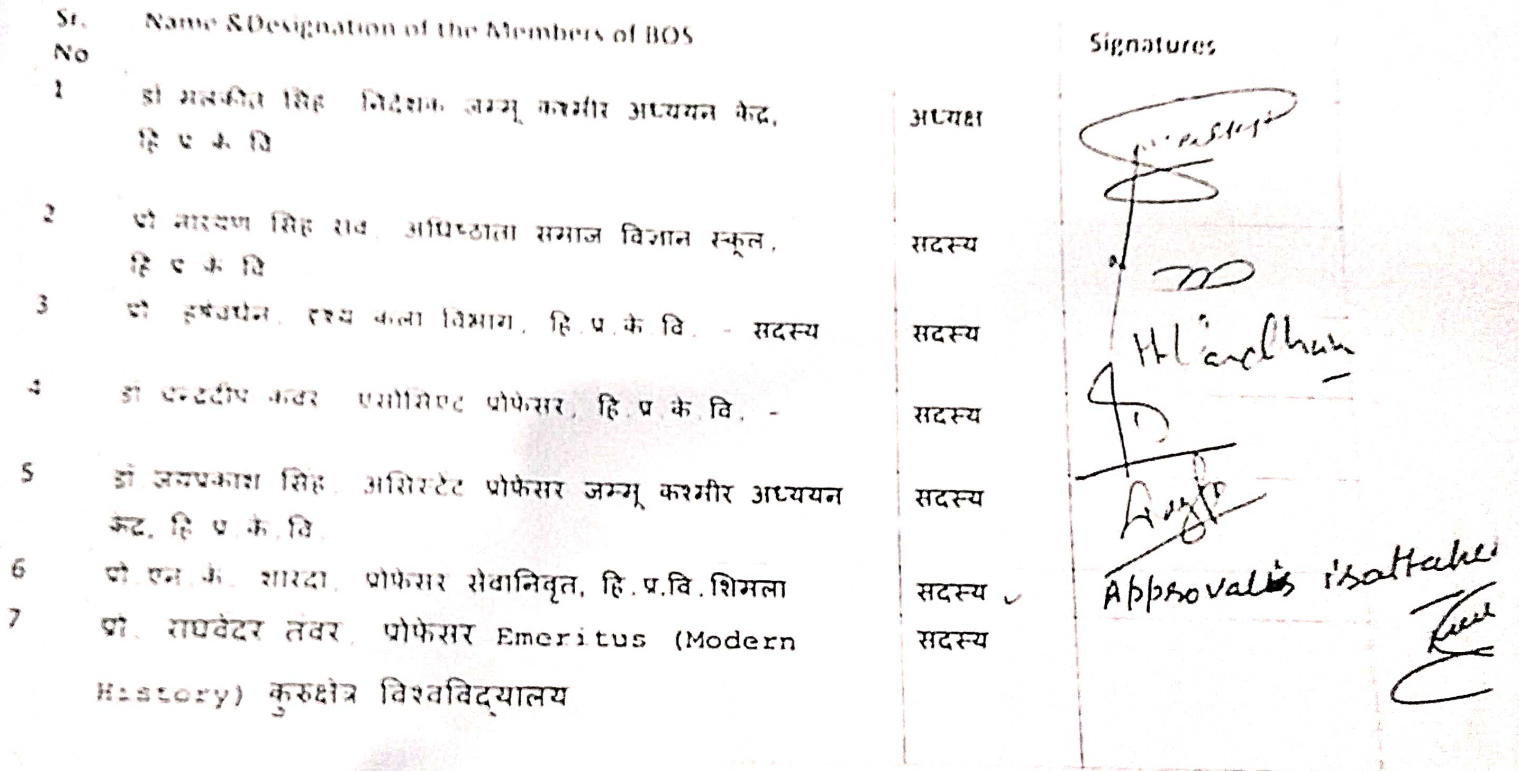 Sr. Name &Designation of the Members of BOS Signatures
No
1 डॉ मलकीत सिंह निदेशक जम्मू कश्मीर अध्ययन केंद्र, अध्यक्ष
हि प्र के वि
2 प्रो नारायण सिंह राव अधिष्ठाता समाज विज्ञान स्कूल, सदस्य
हि प्र के वि
3 प्रो हर्षवर्धन, दृश्य कला विभाग, हि.प्र.के.वि. - सदस्य सदस्य
4 डॉ चन्द्रदीप कवर एसोसिएट प्रोफेसर, हि.प्र.के.वि. - सदस्य
5 डॉ. जयप्रकाश सिंह, असिस्टेंट प्रोफेसर जम्मू कश्मीर अध्ययन सदस्य
केंद्र, हि.प्र.के.वि.
6 प्रो.एन.के. शारदा, प्रोफेसर सेवानिवृत, हि.प्र.वि.शिमला सदस्य Approval is
7 प्रो. राघवेंदर तंवर, प्रोफेसर Emeritus (Modern सदस्य
History) कुरुक्षेत्र विश्वविद्यालय